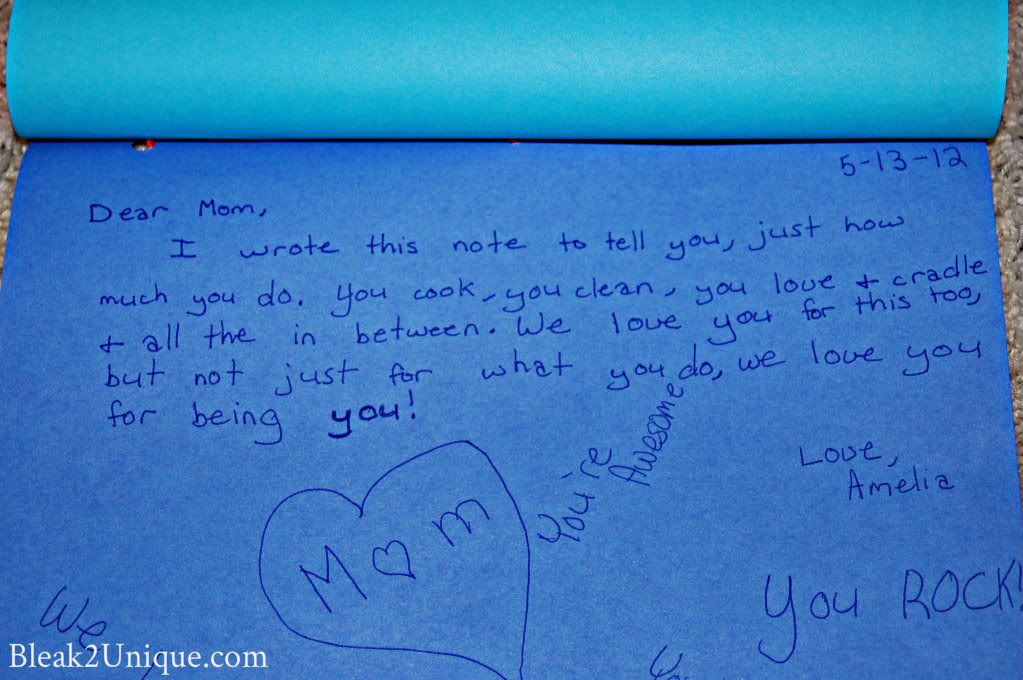 5-13-12
Dear Mom,
I wrote this note to tell you, just how
much you do. You cook, you clean, you love + cradle
+ all the in between. We love you for this too,
but not just for what you do, we love you
for being you!
Love,
Amelia
You're Awesome
M♡m
You ROCK!
We
Bleak2Unique.com